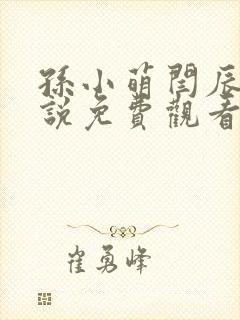 孫小萌閏辰
說免費觀看
崔勇峰